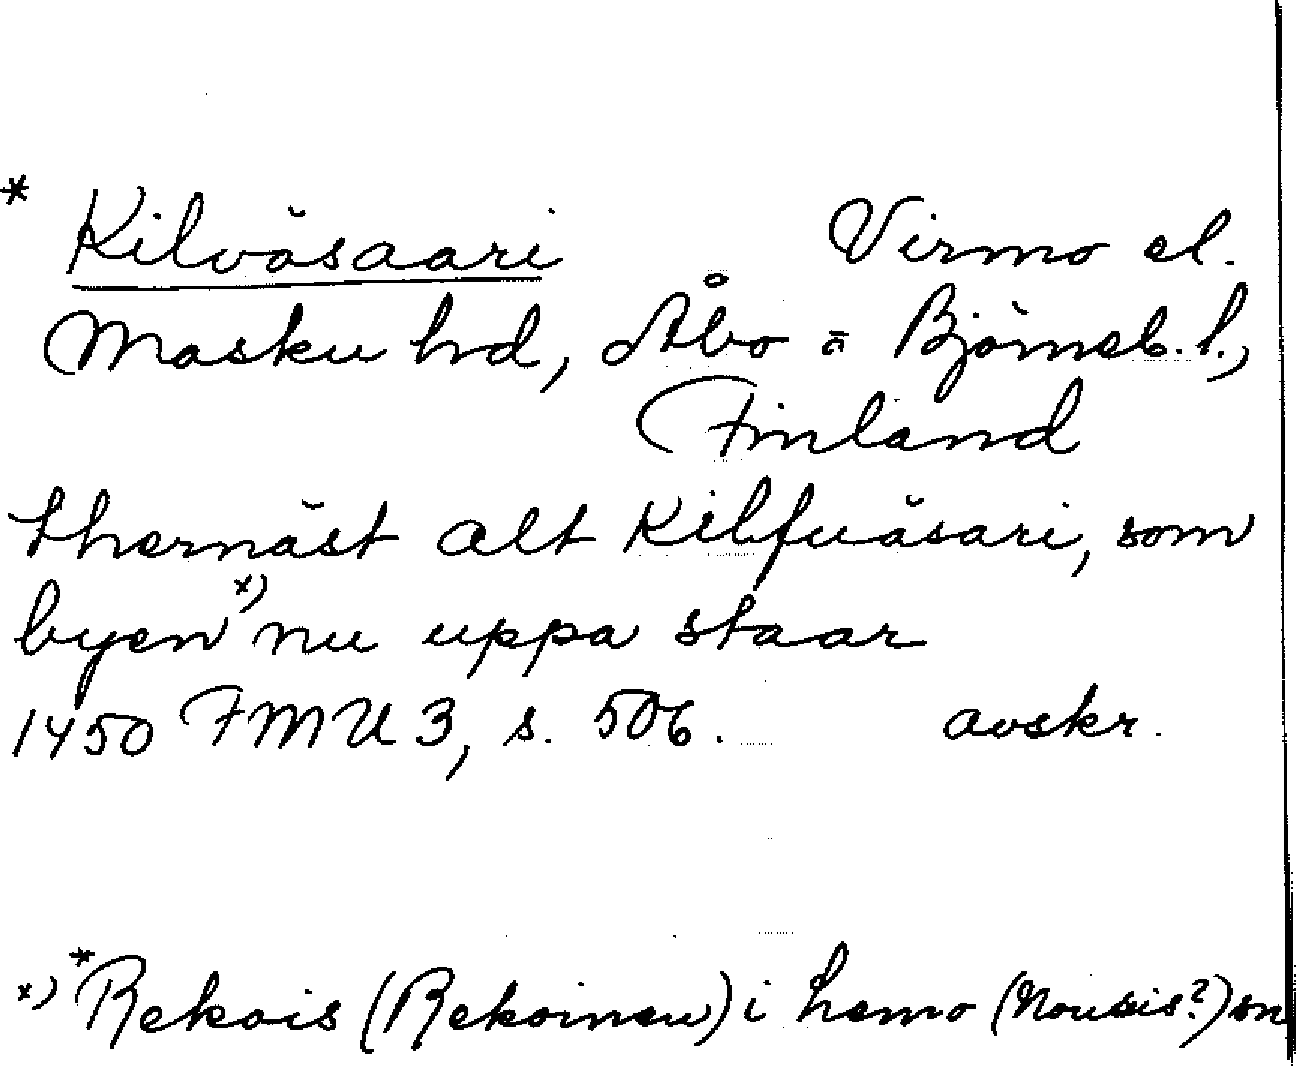 * Kilväsaari Virmo el.
Masku hd, Åbo = Björneb. l.,
Finland
thernäst alt Kilfuäsari, som
byen x) nu uppa staar
1450 FMU 3, s. 506. avskr.
x) *Rekois (Rekoinen) i Lemo (Nousis?) sn